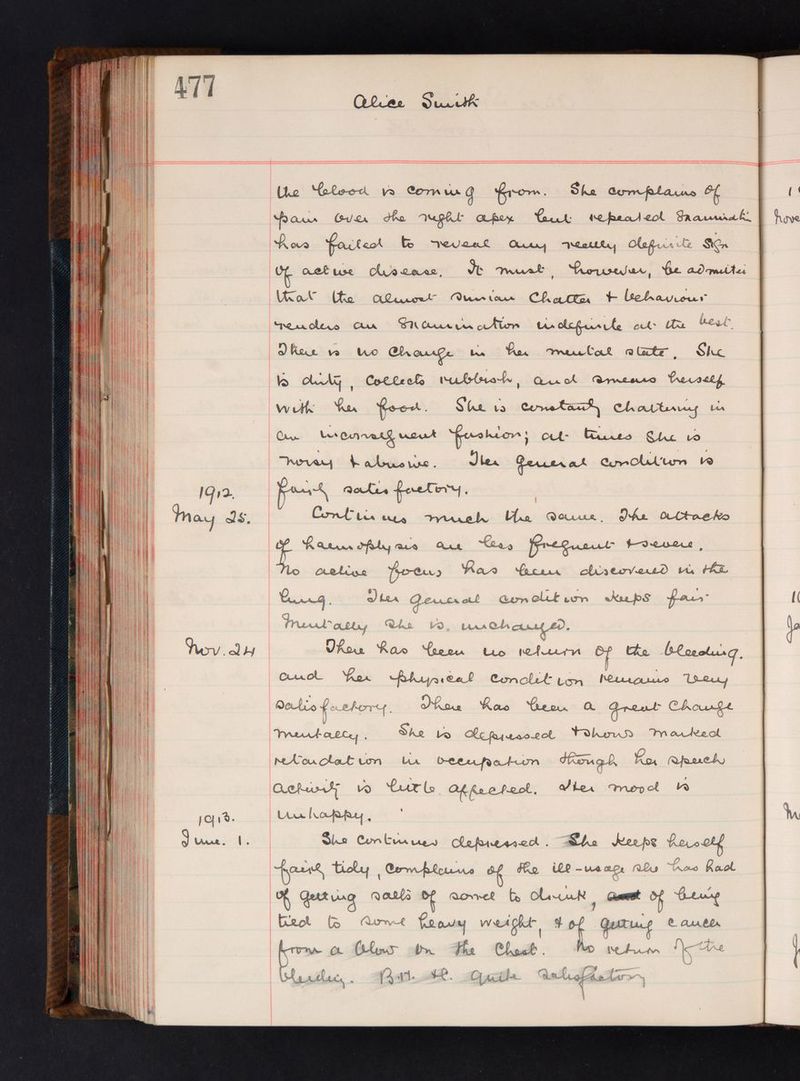 477
Alice Smith
the blood is coming from. She complains of
pain over the right apex but repeated examinat.
has failed to reveal any really definite sign
of active disease. It must, however, be admitted
that the almost simian chatter & behaviour
renders an examination indefinite at the best.
There is no change in her mental state. She
is dirty, collects rubbish, and smears herself
with her food. She is constantly chattering in
an incongruent fashion; at times she is
noisy & abusive. Her general condition is
fairly satisfactory.
1912.
May 25. Continues much the same. The attacks
of haemoptysis are less frequent & severe.
No active focus has been discovered in the
lung. Her general condition keeps fair
Mentally she is unchanged.
Nov. 24 There has been no return of the bleeding.
and her physical condition remains very
satisfactory. There has been a great change
mentally. She is depressed & shows marked
retardation in occupation though her speech
activity is little affected. Her mood is
unhappy.
1913.
June. 1. She continues depressed. She keeps herself
fairly tidy, complains of the ill-usage she has had
of getting salts of sorrel to drink, of being
tied to some heavy weight, & of getting cancer
from a blow on the chest. No return of the
bleeding. B.H. quite satisfactory